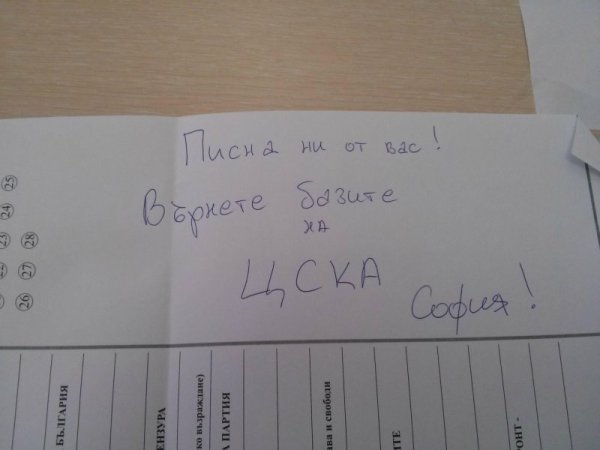 Писна ни от вас!
Върнете базите
на
ЦСКА
София!
25
24
23 28
27
26
БЪЛГАРИЯ
ЕНЗУРА
ко възраждане)
А ПАРТИЯ
ава и свободи
ИТЕ
РОНТ -